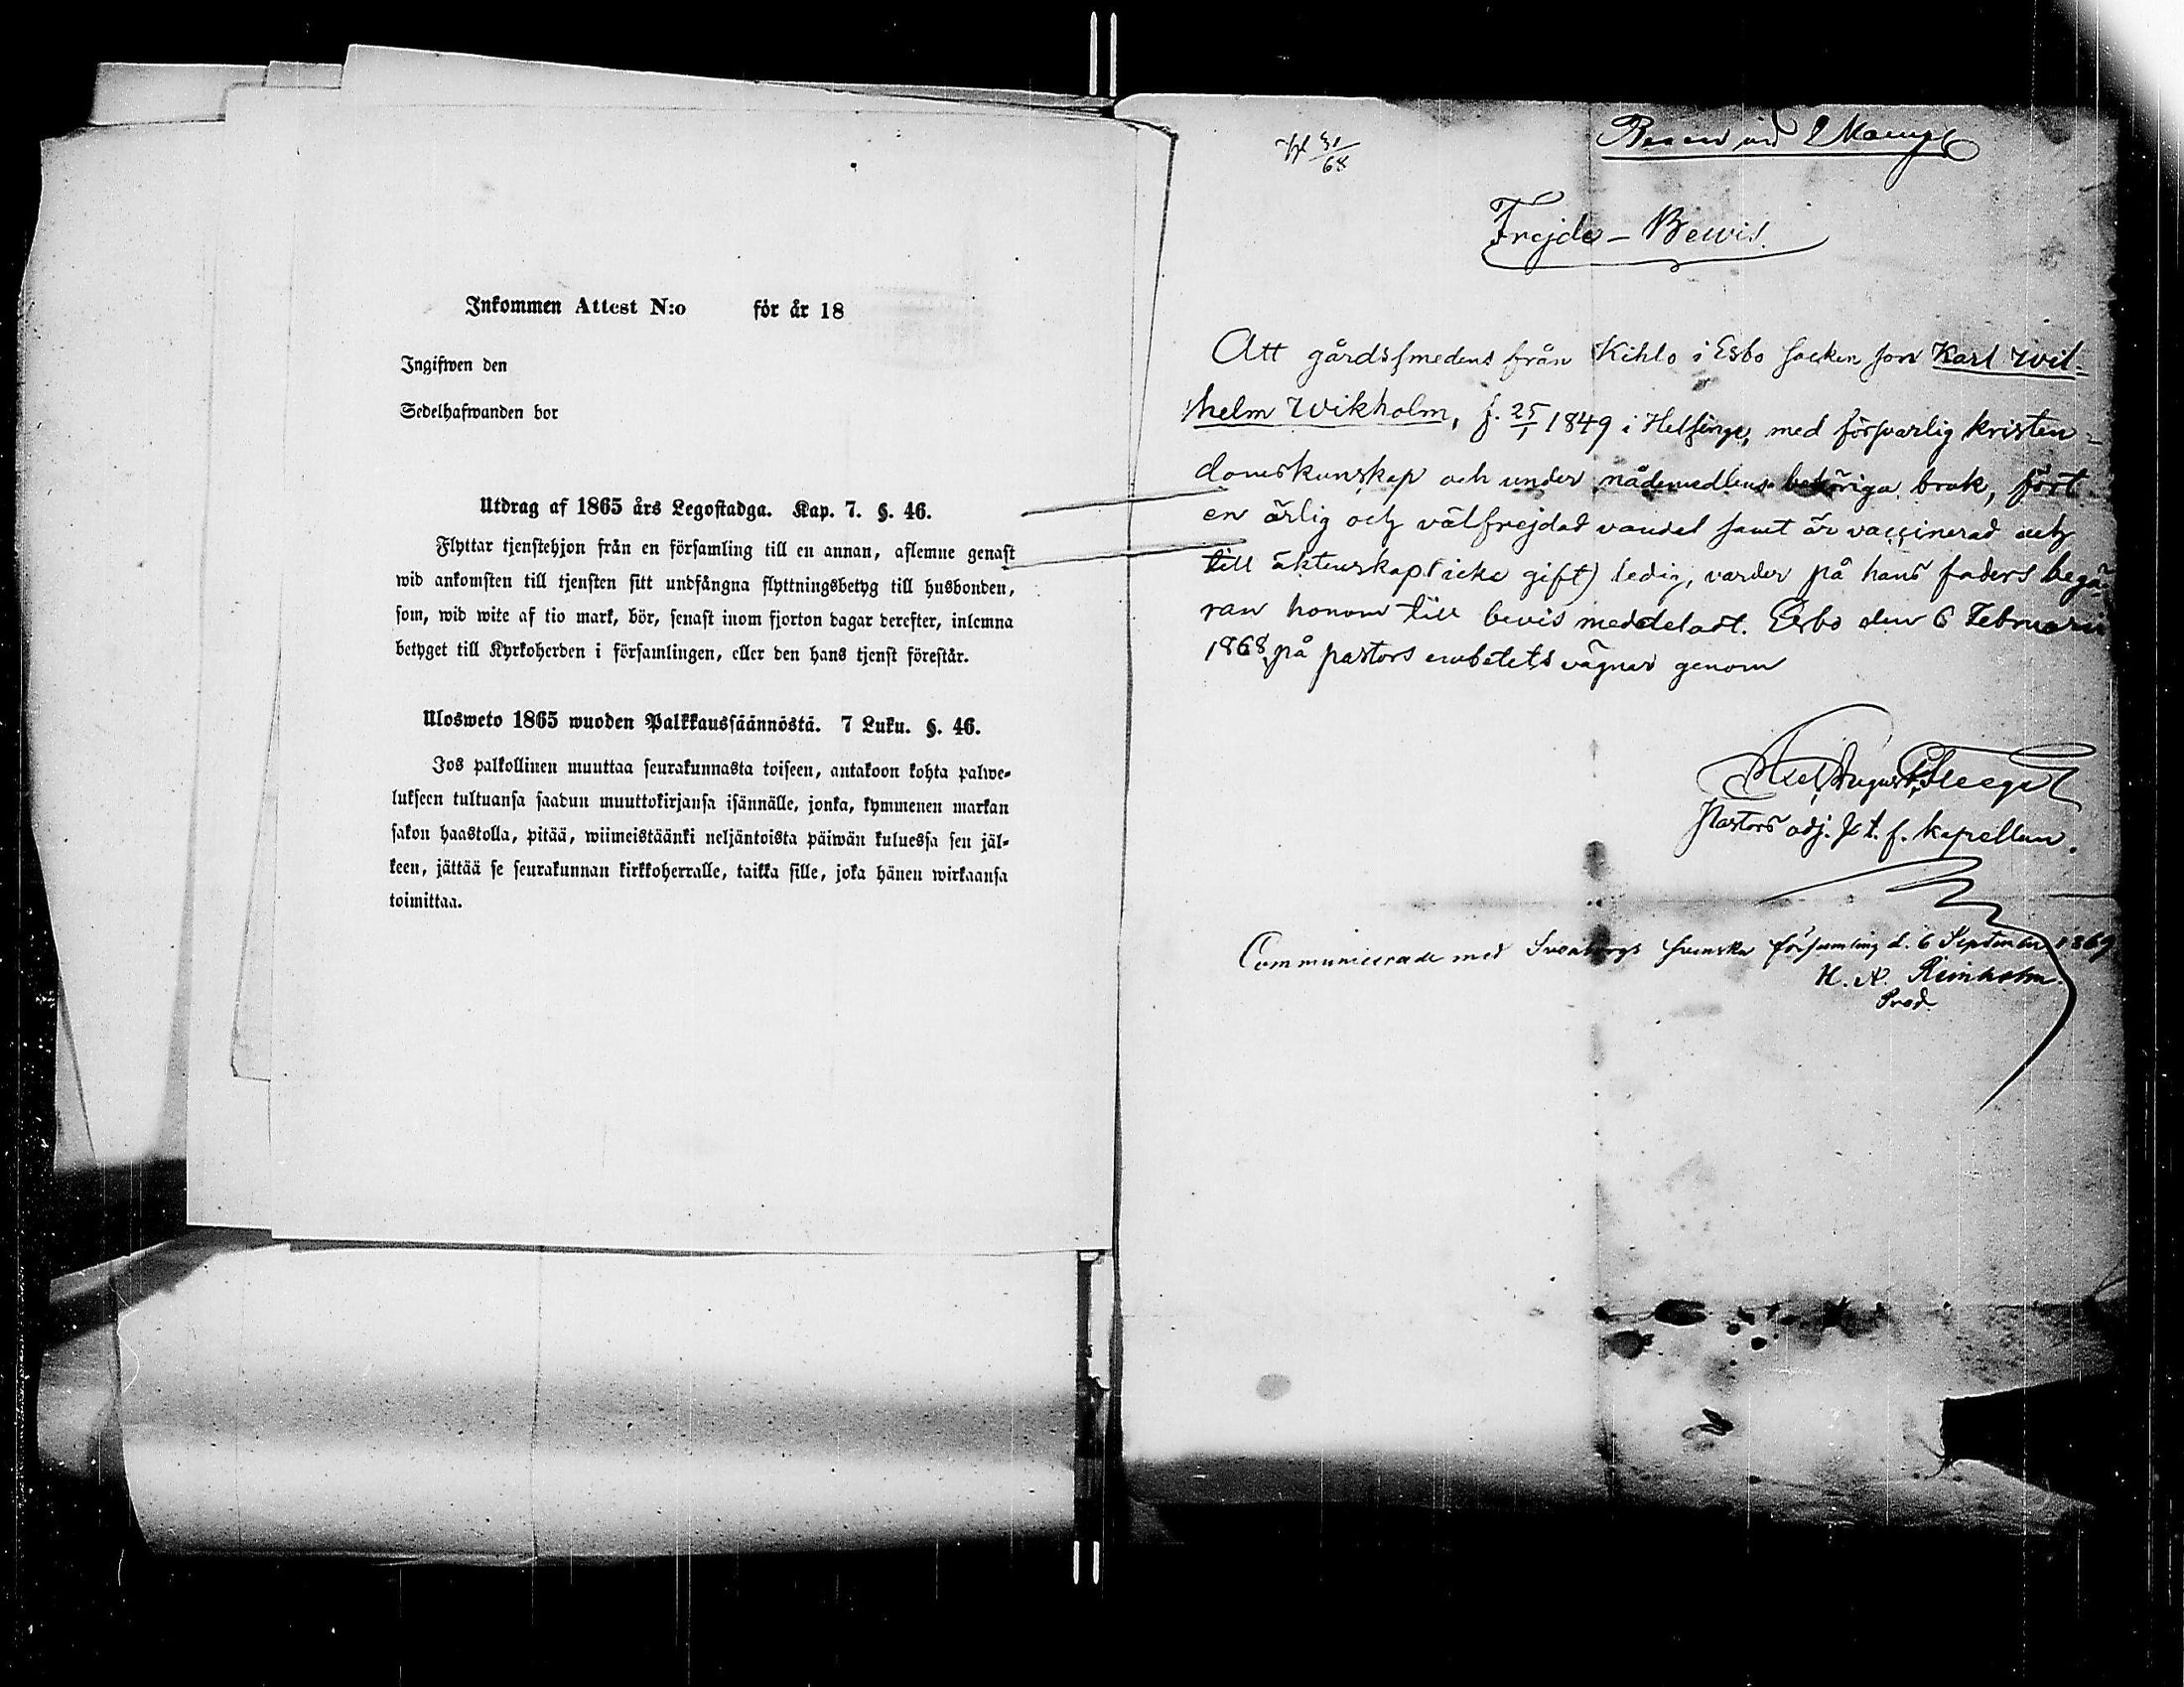 Inkommen Attest N:o för år 18
Ingifwen den
Sedelhafwanden bor
Utdrag af 1865 års Legostadga. Kap. 7. §. 46.
Flyttar tjenstehjon från en församling till en annan, aflemne genast
wid ankomsten till tjensten sitt undfångna flyttningsbetyg till husbonden,
som, wid wite af tio mark, bör, senast inom fjorton dagar derefter, inlemna
betyget till Kyrkoherden i församlingen, eller den hans tjenst förestår.
Ulosweto 1865 wuoden Palkkaussäännöstä. 7 Luku. §. 46.
Jos palkollinen muuttaa seurakunnasta toiseen, antakoon kohta palwe-
lukseen tultuansa saadun muuttokirjansa isännälle, jonka, kymmenen markan
sakon haastolla, pitää, wiimeistäänki neljäntoista päiwän kuluessa sen jäl-
keen, jättää se seurakunnan kirkkoherralle, taikka sille, joka hänen wirkaansa
toimittaa.
31/68
Frejde-Bewis.
Att gårdssmedens från Kihlo i Esbo socken son Karl Wil-
helm Wikholm, f. 25/1 1849 i Helsinge, med försvarlig kristen-
domskunskap och under nådemedlens behöriga bruk, fört
en ärlig och välfrejdad vandel samt är vaccinerad och
till äktenskap (icke gift) ledig, varder på hans faders begä-
ran honom till bevis meddeladt. Esbo den 6 Februari
1868, på pastors embetets vägnar genom
Axel August
Pastors adj. & t. f. kapellan.
Communicerade med Sveaborgs svenska församling d. 6 September 1869
H. A. Reinholm.
Pred.